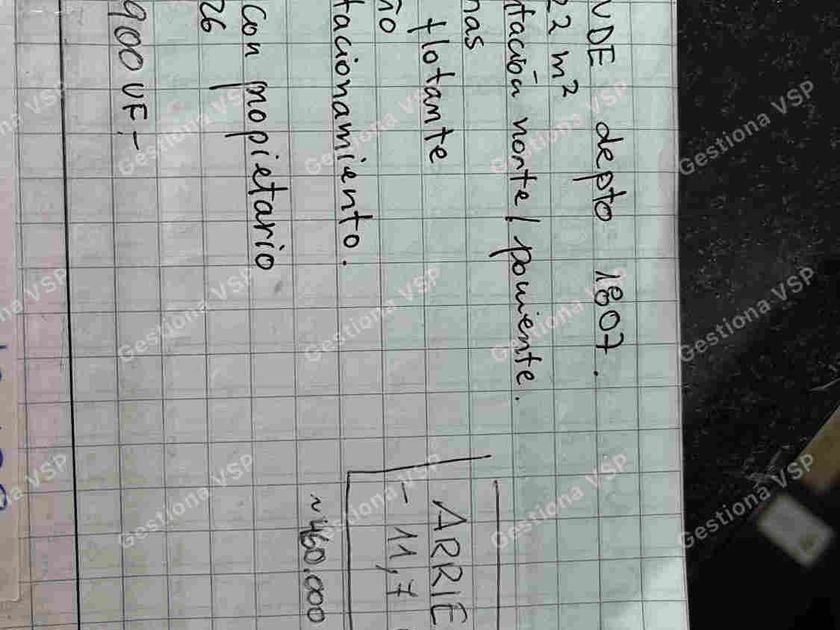 VDE depto 1807.
22 m²
ntación norte/poniente.
nas
flotante
ño
tacionamiento.
Con propietario
26
900 UF.-
ARRIE
- 11,7
~460.000
Gestiona VSP